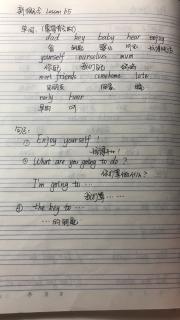 新概念 Lesson 65
单词：
dad key baby hear enjoy
爸 钥匙 婴儿 听见
yourself ourselves mum
你自己 我们自己 妈妈
meet friends come home late
回家
early hour
早的 时
句型：
① Enjoy yourself !
② What are you going to do ?
你打算做什么？
I'm going to …
我打算 …
③ the key to …
… 的钥匙